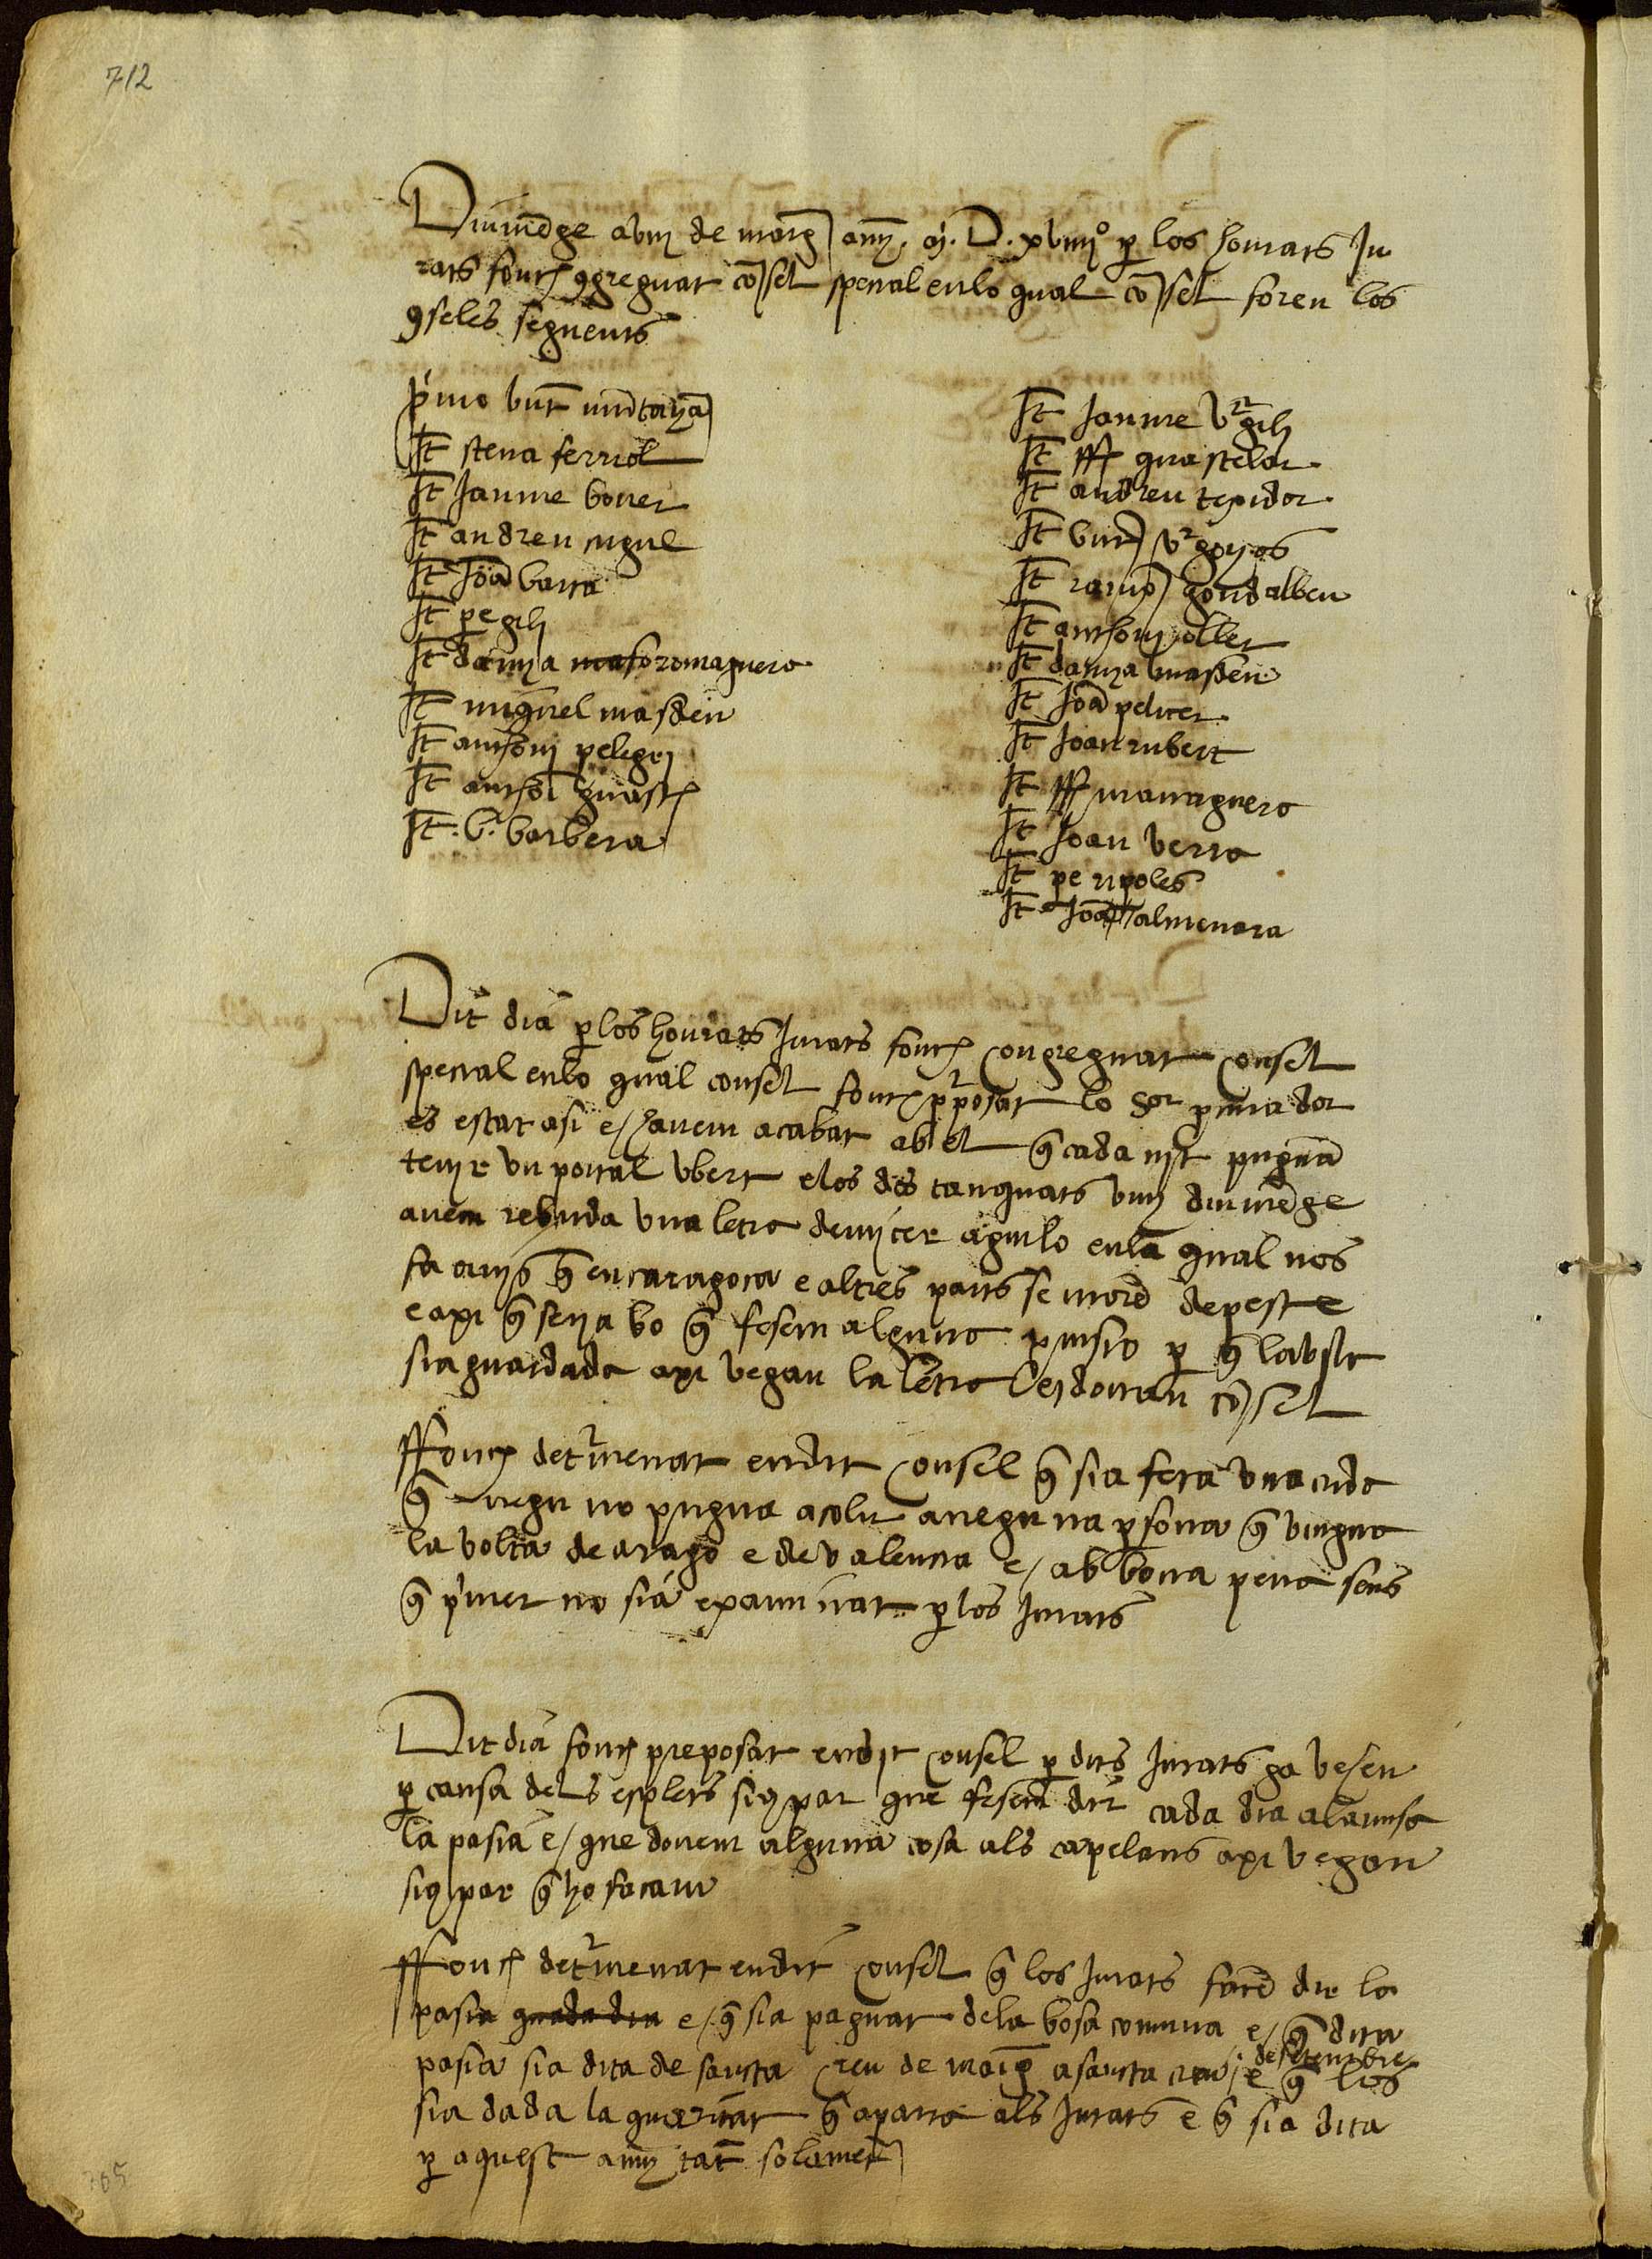 712
Diumẽge a viij de març any. mj. D. xviiijº p los honrats Ju
rats fonch ꝯgreguat cõsel specral en lo qual cõsel foren los
ꝯseles seguents
p'mo bnt muntanya
It steva ferriol
It Jaume boner
It andreu cugul
It Joã barra
It pe gili
It damia mas foromaguera
It miquel masdeu
It anthoni pelegri
It anthoi guasch
It. b. barbera
It Jaume virgili
It ff guastelar
It andreu texidor
It bnt virgonjos
It ramõ gondalbeu
It anthoni oller
It damia masdeu
It Joã pelicer
It Joan rubert
It ff managuera
It Joan verra
It pe ripoles
It Joã almenara
Dit dia p los honrats Jurats fonch congreguat consel
specral en lo qual consel fonch pposat lo Sor pcurador
es estat asi e havem acabat ab el q̃ cada nit pugua
tenir un portal ubert e los dos tanquats vuy diumẽge
avem rebuda una letra de micer aguilo en la qual nos
fa avis q̃ en caragoca e altres parts se morẽ de peste
e axi q̃ seria bo q̃ fesem alguna pvisio p q̃ la vila
sia guardada axi vegau la letra e y donrau cõsel
Ffonch detmenat en dit consel q̃ sia feta una crida
q̃ negu no pugua acolir a neguna psona q̃ vingua
la volta de arago e de valencia e ab bona pena sens
q̃ p'mer no sia examinat p los Jurats
Dit dia fonch preposat en dit consel p dits Jurats ga veheu
p causa dels esplets sius par que fesem dir cada dia a la misa
la pasia e que donem alguna cosa als capelans axi vegau
sius par q̃ ho facam
Ffonch detmenat en dit consel q̃ los Jurats facẽ dir la
pasia quada dia e q̃ sia paguat de la bosa comuna e q̃ dita
pasia sia dita de sancta creu de maig a sancta creu de setembre e q̃ los
sia dada la quaritat q̃ aparra als Jurats e q̃ sia dita
p aquest any tãt solament
305